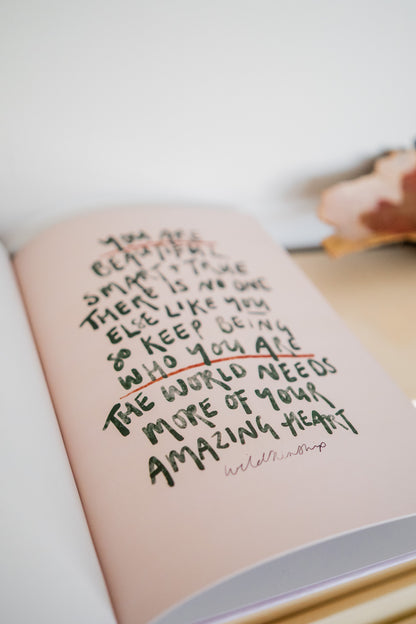 YOU ARE
BEAUTIFUL
SMART + TRUE
THERE IS NO ONE
ELSE LIKE YOU
SO KEEP BEING
WHO YOU ARE
THE WORLD NEEDS
MORE OF YOUR
AMAZING HEART
wildkinship